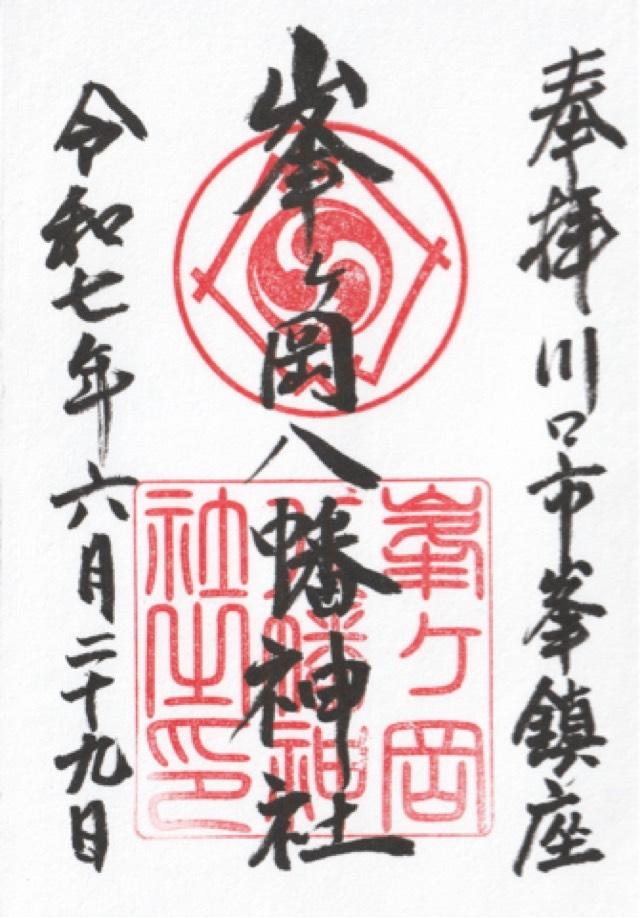 奉拝 川口市峯鎮座
峯ヶ岡八幡神社
令和七年六月二十九日
峯ヶ岡
八幡神
社之印